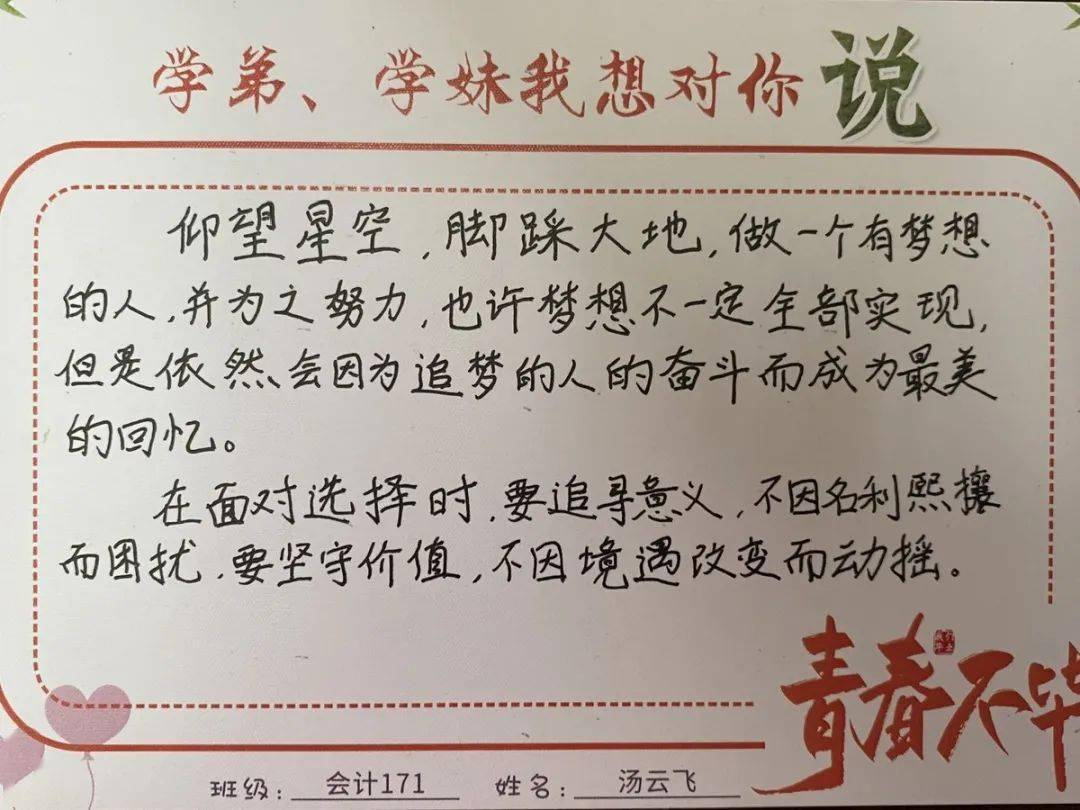 学弟、学妹我想对你说
仰望星空,脚踩大地,做一个有梦想
的人,并为之努力,也许梦想不一定全部实现,
但是依然会因为追梦的人的奋斗而成为最美
的回忆。
在面对选择时,要追寻意义,不因名利熙攘
而困扰,要坚守价值,不因境遇改变而动摇。
青春不毕
班级:会计171 姓名:汤云飞